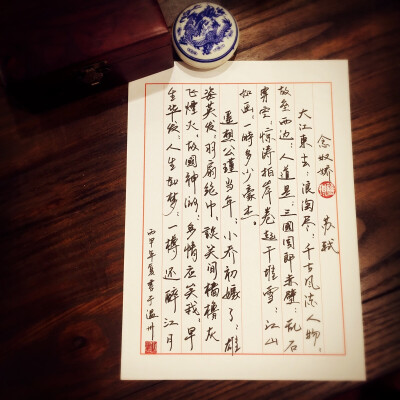 念奴娇 苏轼
大江東去；浪淘尽；千古风流人物；
故垒西边；人道是；三國周郎赤壁；乱石
穿空；惊涛拍岸卷起千堆雪；江山
如画一時多少豪杰。
遥想公瑾当年；小乔初嫁了；雄
姿英发羽扇纶巾，谈笑间樯橹灰
飞煙灭，故國神游；多情应笑我；早
生华发；人生如梦；一樽还酹江月
丙申年夏書于温州